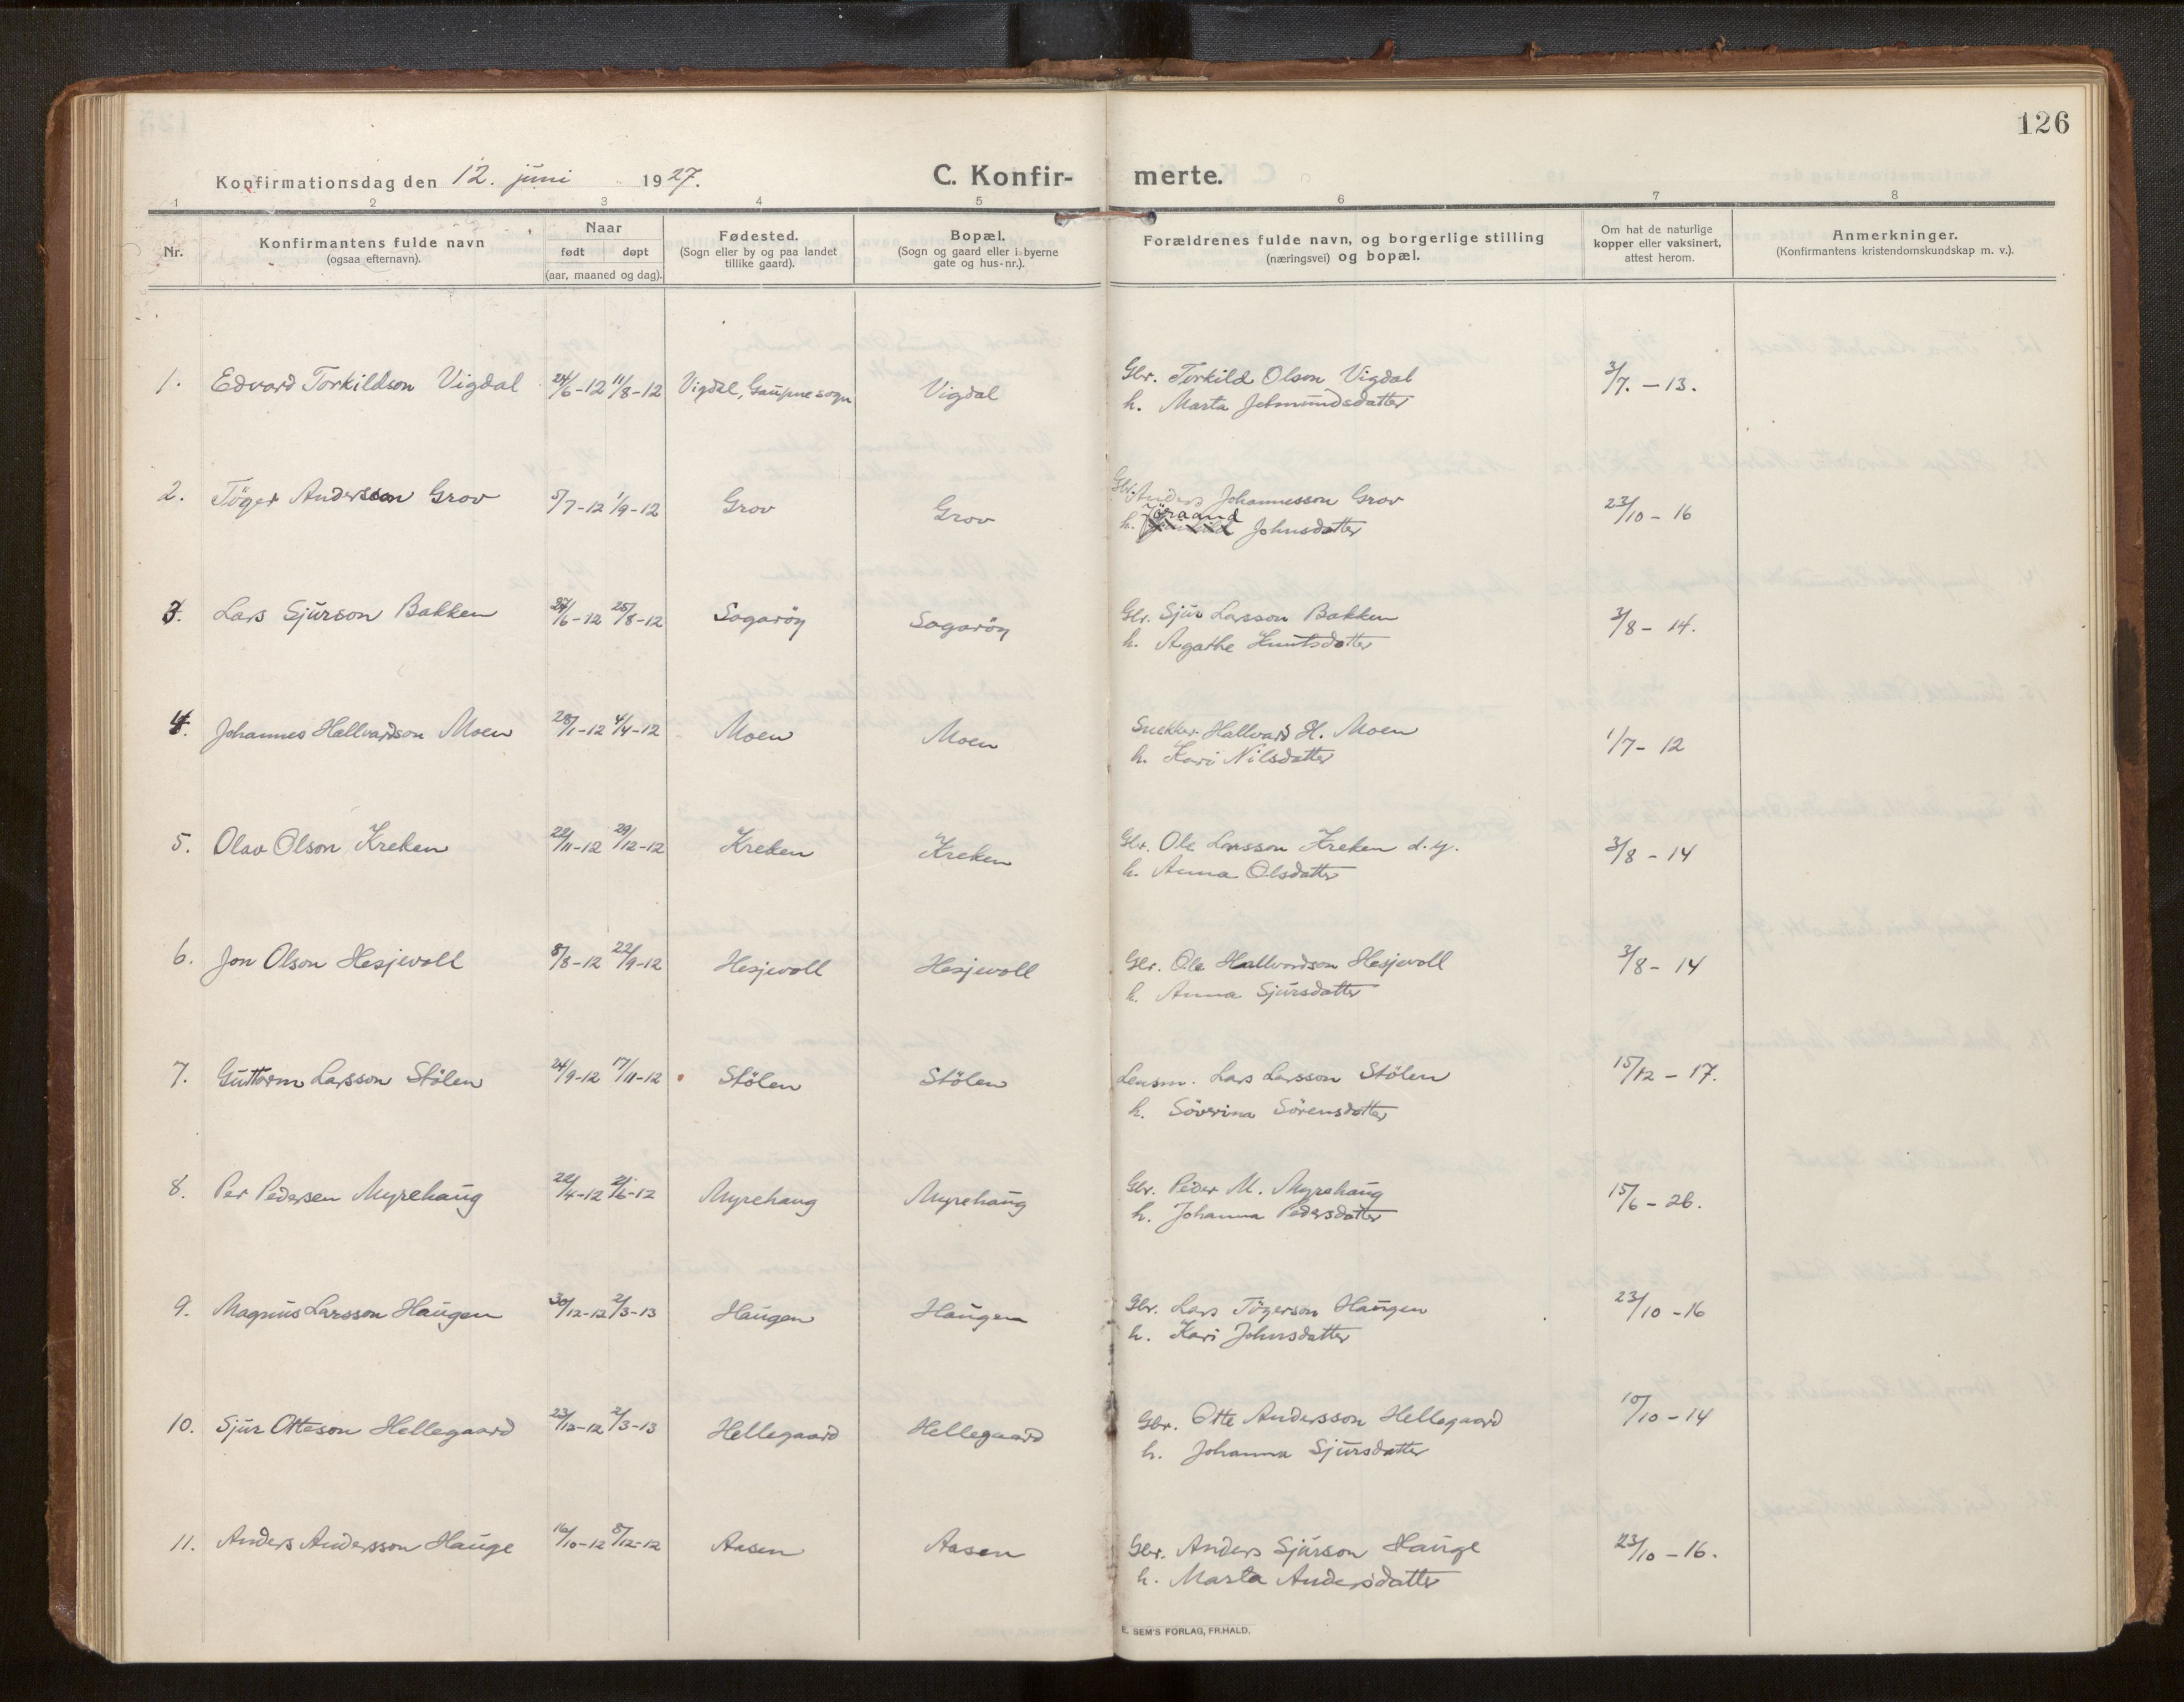 126
Konfirmationsdag den 12. juni 1927.
C. Konfirmerte.
1 2 3 4 5 6 7 8
Nr.
Konfirmantens fulde navn
(ogsaa efternavn).
Naar
født døpt
(aar, maaned og dag).
Fødested.
(Sogn eller by og paa landet
tillike gaard).
Bopæl.
(Sogn og gaard eller i byerne
gate og hus-nr.).
Forældrenes fulde navn, og borgerlige stilling
(næringsvei) og bopæl.
Om hat de naturlige
kopper eller vaksinert,
attest herom.
Anmerkninger.
(Konfirmantens kristendomskundskap m. v.).
1. Edvard Torkildson Vigdal 24/6-12 11/8-12 Vigdal, Gaupne sogn Vigdal Gbr. Torkild Olson Vigdal 3/7. - 13.
h. Marta Jetmundsdatter
2. Töger Andersson Grov 5/7-12 1/9-12 Grov Grov Gbr. Anders Johannesson Grov 23/10 - 16
h. Jöraand Johnsdatter
3. Lars Sjurson Bakken 27/6-12 25/8-12 Sogaröy Sogaröy Gbr. Sjur Larsson Bakken 3/8 - 14.
h. Agathe Knutsdatter
4. Johannes Hallvardson Moen 28/1-12 4/4-12 Moen Moen Snekker Hallvard H. Moen 1/7 - 12
h. Kari Nilsdatter
5. Olav Olson Kreken 22/11-12 29/12-12 Kreken Kreken Gbr. Ole Larsson Kreken d.y. 3/8 - 14
h. Anna Olsdatter
6. Jon Olson Hesjevoll 8/8-12 22/9-12 Hesjevoll Hesjevoll Gbr. Ole Hallvardson Hesjevoll 3/8 - 14
h. Anna Sjursdatter
7. Guttorm Larsson Stölen 24/9-12 17/11-12 Stölen Stölen Lensm. Lars Larsson Stölen 15/12 - 17.
h. Söverina Sörensdatter
8. Per Pedersen Myrehaug 22/4-12 2/6-12 Myrehaug Myrehaug Gbr. Peder M. Myrehaug 15/6 - 26.
h. Johanna Pedersdatter
9. Magnus Larsson Haugen 30/12-12 2/3-13 Haugen Haugen Gbr. Lars Tögerson Haugen 23/10 - 16
h. Kari Johnsdatter
10. Sjur Otteson Hellegaard 23/12-12 2/3-13 Hellegaard Hellegaard Gbr. Otte Andersson Hellegaard 10/10 - 14
h. Johanna Sjursdatter
11. Anders Andersson Hauge 16/10-12 8/12-12 Aasen Aasen Gbr. Anders Sjurson Hauge 23/10 - 16.
h. Marta Andersdatter
E. SEM'S FORLAG, FR.HALD.